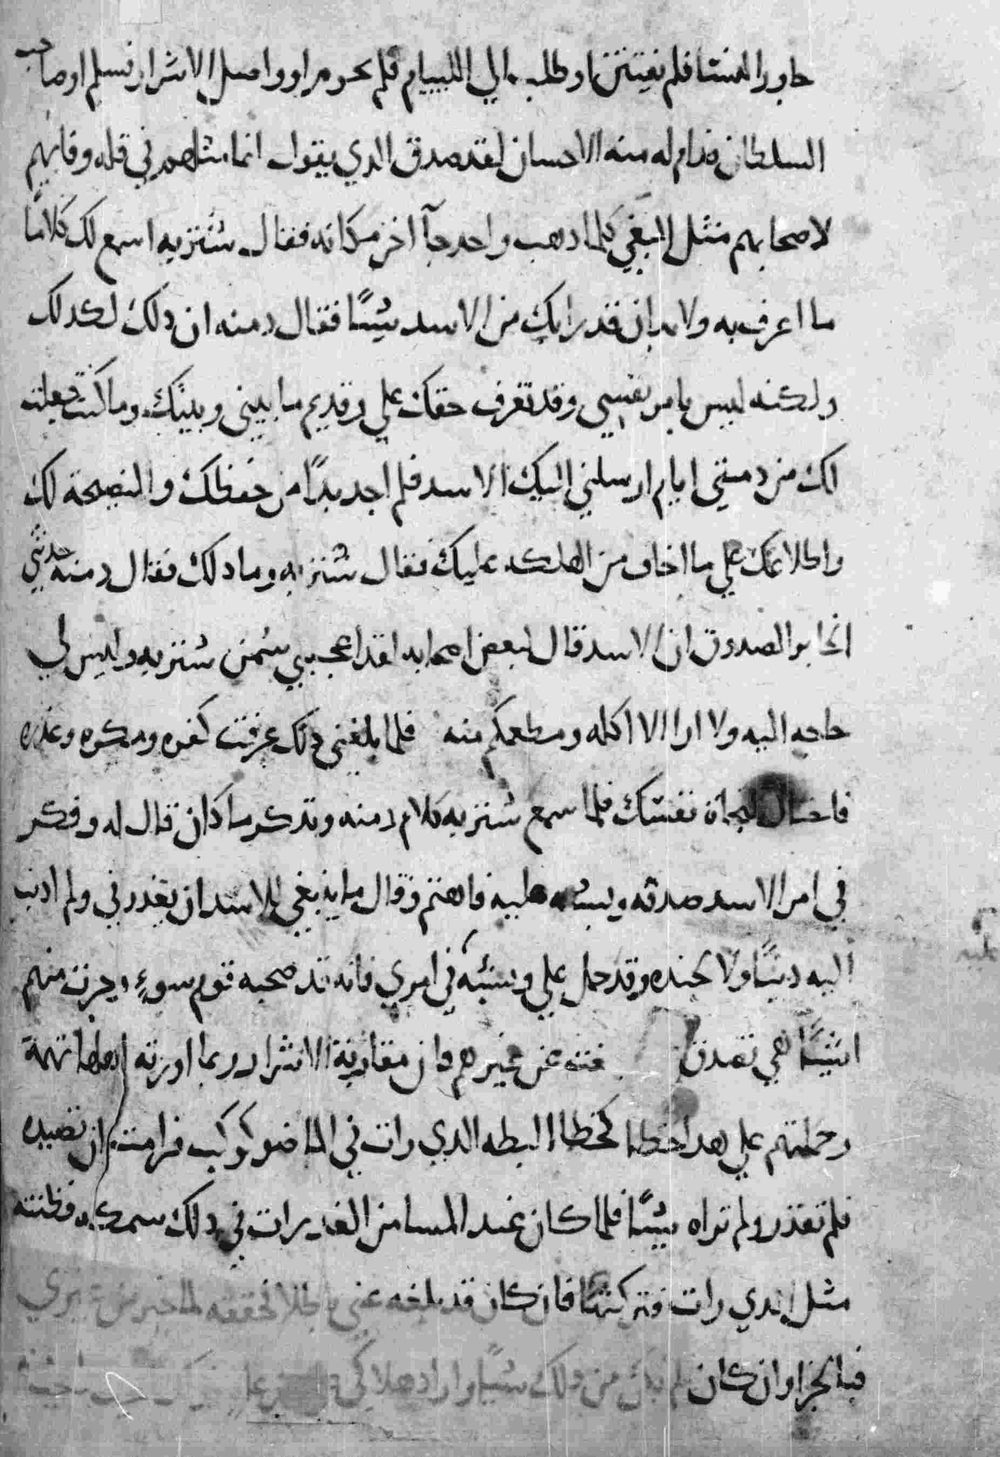 جاور النسا فلم يفتتن او طلب الي الليام فلم يحرم او واصل الاشرار فسلم او صاحب
السلطان فدام له منه الاحسان لقد صدق الدي يقول انما مثلهم في قله وفايهم
لاصحابهم مثل البغي كلما دهب واحد جآ اخر مكانه فقال شنزبه اسمع لك كلامًا
ما اعرف به ولا بد ان قد رابك من الاسد شيئًا فقال دمنه ان دلك لكدلك
ولكنه ليس بامر نفسي وقد تعرف حقك علي وقديم ما بيني وبينك وما كنت جعلت
لك من دمتي ايام ارسلني اليك الاسد فلم اجد بدًا من حفظك والنصيحة لك
واطلاعك علي ما اخاف من الهلكه عليك فقال شنزبه وما دلك فقال دمنه حدثني
الخابر الصدوق ان الاسد قال لبعض اصحابه لقد اعجبني سُمن شنزبه وليس لي
حاجه اليه ولا ارا الا اكله ومطعمكم منه فلما بلغني دلك عرفت كفره ومكره وغدره
فاحتال لنجاة نفسك فلما سمع شنزبه كلام دمنه وتدكر ما كان قال له وفكر
في امر الاسد صدقه وشبه عليه فاهتم وقال ما ينبغي للاسد ان يغدر بي ولم ادنب
اليه دنبًا ولا لجنده وقد حمل علي وشبّه في امري فانه قد صحبه قوم سوءٍ وجرت منهم
اشيًا هي تصدق عنده عن غيرهم وان مقارنة الاشرار ربما اورثه اهلها تهمة
وحملتهم علي هدا خطا كخطا البطه الدي رات في الما ضو كوكب فرامت ان تصيده
فلم تقدر ولم تراه شيًا فلما كان عند المسا من الغد رات في دلك سمكه فظنته
مثل الدي رات فتركتها فان كان قد بلغه عني باطلا فحققه لما خبر من غيري
فبالحرا وان كان لم يك من دلك شيًا واراد هلاكي من غير عله